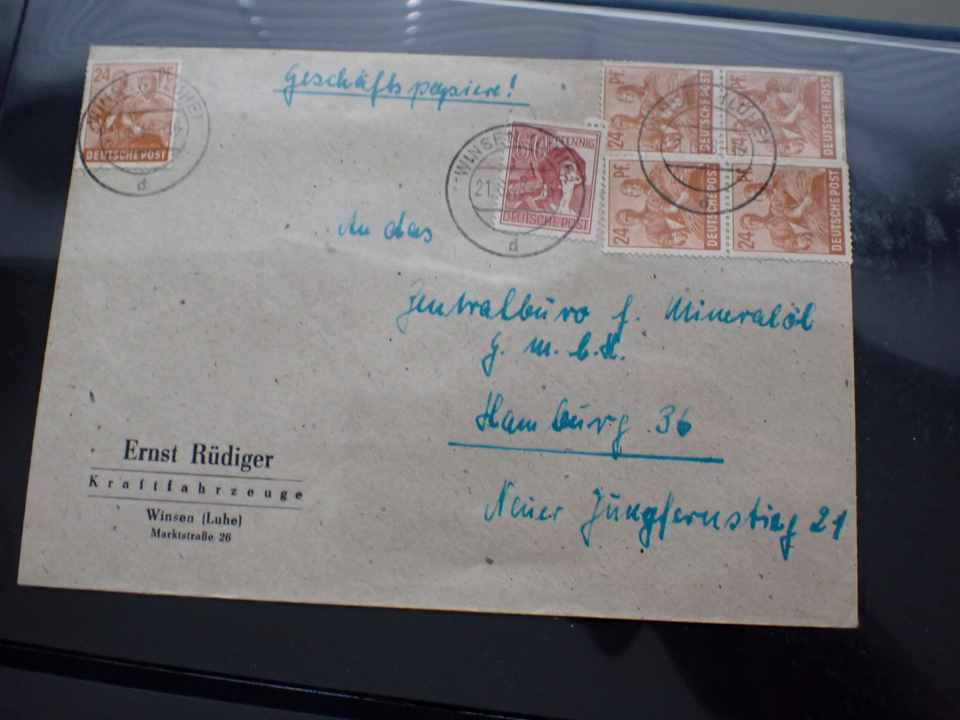 Geschäftspapiere!
24 PF
DEUTSCHE POST
WINSEN (LUHE)
d
PFENNIG
DEUTSCHE POST
WINSEN
21.
d
24 PF
DEUTSCHE POST
24 PF
DEUTSCHE POST
24 PF
DEUTSCHE POST
24 PF
DEUTSCHE POST
(LUHE)
An das
Zentralbüro f. Mineralöl
G.m.b.H.
Hamburg 36
Neuer Jungfernstieg 21
Ernst Rüdiger
Kraftfahrzeuge
Winsen (Luhe)
Marktstraße 26